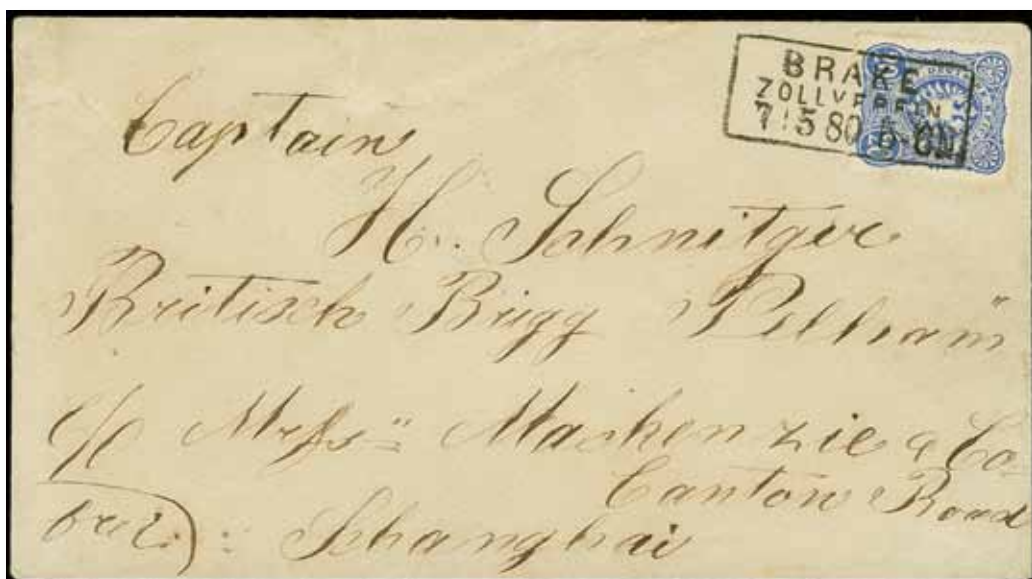 BRAKE
ZOLLVEREIN
7 5 80 6-
Captain
H. Schnitger
Britisch Brigg „Pelham“
c/o Messrs Mackenzie & Co
Canton Road
Schanghai